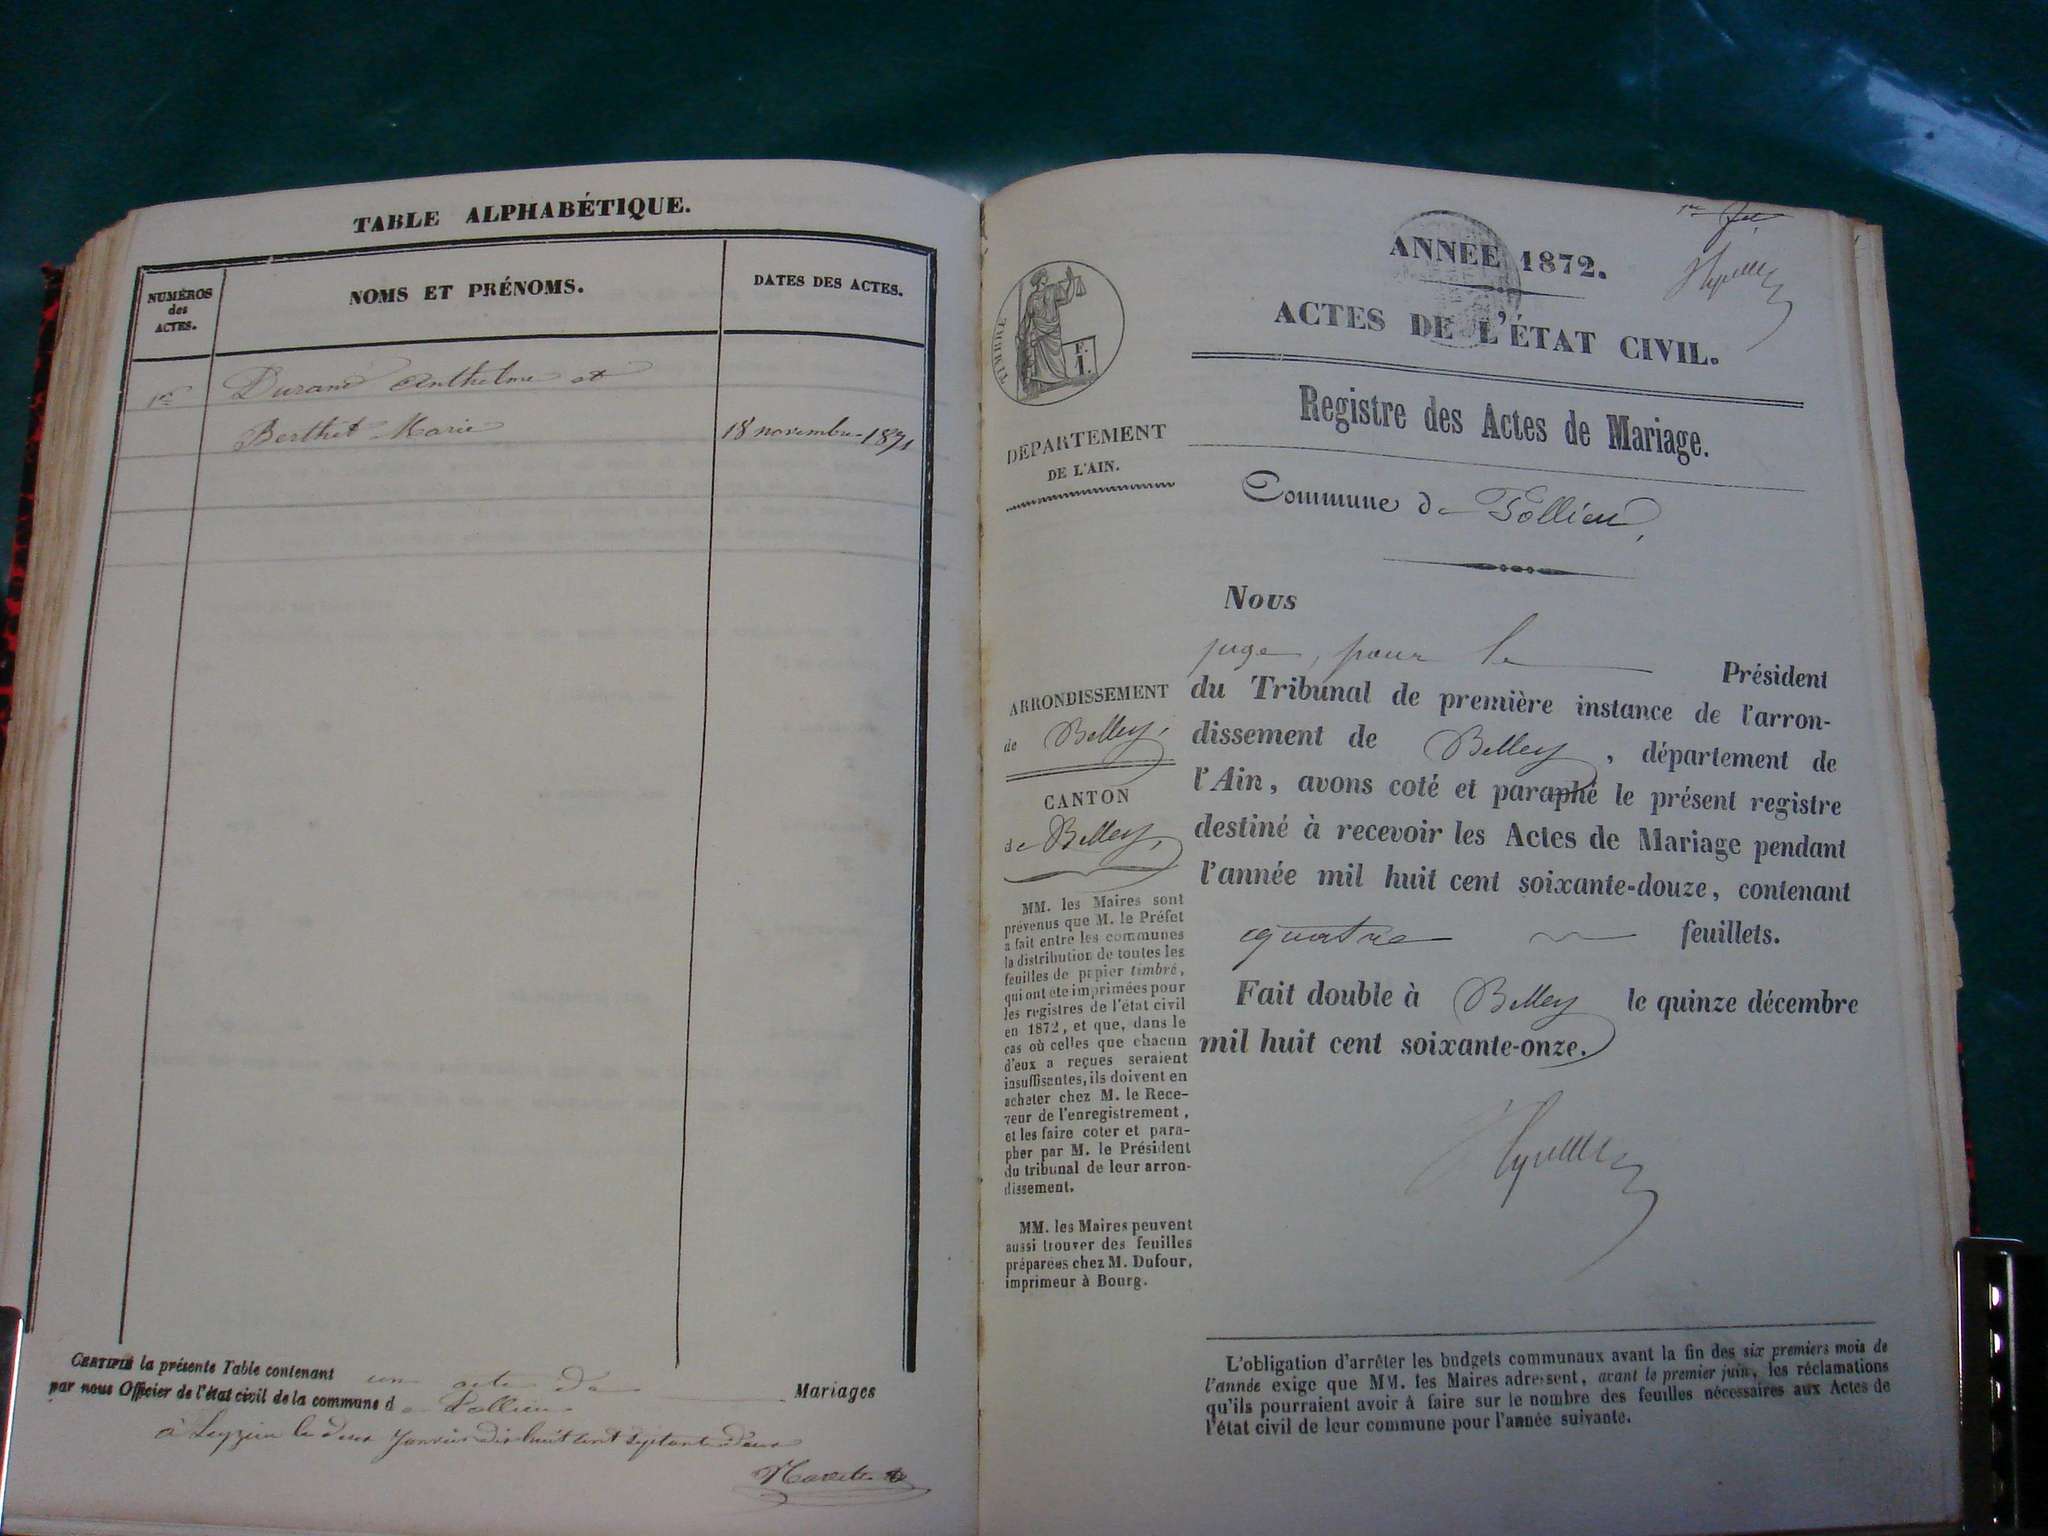 TABLE ALPHABÉTIQUE.
NUMÉROS
des
ACTES.
NOMS ET PRÉNOMS.
DATES DES ACTES.
1er
Durand Anthelme et
Berthet Marie
18 novembre 1871
CERTIFIÉ la présente Table contenant un acte de Mariages
par nous Officier de l'état civil de la commune d e Pollieu
à Leyzieu le deux Janvier dix huit cent septante deux
1er
ANNÉE 1872.
ACTES DE L'ÉTAT CIVIL.
TIMBRE
F.
1.
Registre des Actes de Mariage.
DÉPARTEMENT
DE L'AIN.
Commune de Pollieu,
Nous
juge, pour le Président
ARRONDISSEMENT
de Belley,
CANTON
de Belley,
du Tribunal de première instance de l'arron-
dissement de Belley, département de
l'Ain, avons coté et paraphé le présent registre
destiné à recevoir les Actes de Mariage pendant
l'année mil huit cent soixante-douze, contenant
quatre feuillets.
Fait double à Belley le quinze décembre
mil huit cent soixante-onze.
MM. les Maires sont
prévenus que M. le Préfet
a fait entre les communes
la distribution de toutes les
feuilles de papier timbré,
qui ont été imprimées pour
les registres de l'état civil
en 1872, et que, dans le
cas où celles que chacun
d'eux a reçues seraient
insuffisantes, ils doivent en
acheter chez M. le Rece-
veur de l'enregistrement,
et les faire coter et para-
pher par M. le Président
du tribunal de leur arron-
dissement.
MM. les Maires peuvent
aussi trouver des feuilles
préparées chez M. Dufour,
imprimeur à Bourg.
L'obligation d'arrêter les budgets communaux avant la fin des six premiers mois de
l'année exige que MM. les Maires adressent, avant le premier juin, les réclamations
qu'ils pourraient avoir à faire sur le nombre des feuilles nécessaires aux Actes de
l'état civil de leur commune pour l'année suivante.